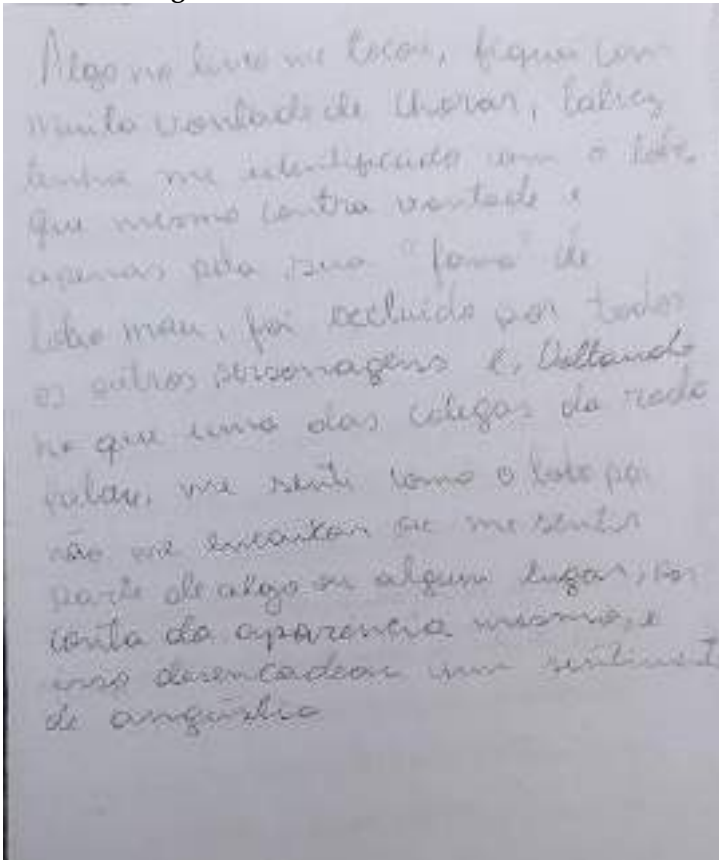 Algo no livro me tocou, fiquei com
muita vontade de chorar, talvez
tenha me identificado com o lobo,
que mesmo contra vontade e
apenas pela sua "fama" de
lobo mau, foi excluído por todos
os outros personagens e, Voltando
no que uma das colegas da roda
falou, me senti como o lobo por
não me encaixar ou me sentir
parte de algo ou algum lugar, por
conta da aparência mesmo, e
isso desencadeou um sentiment
de angústia